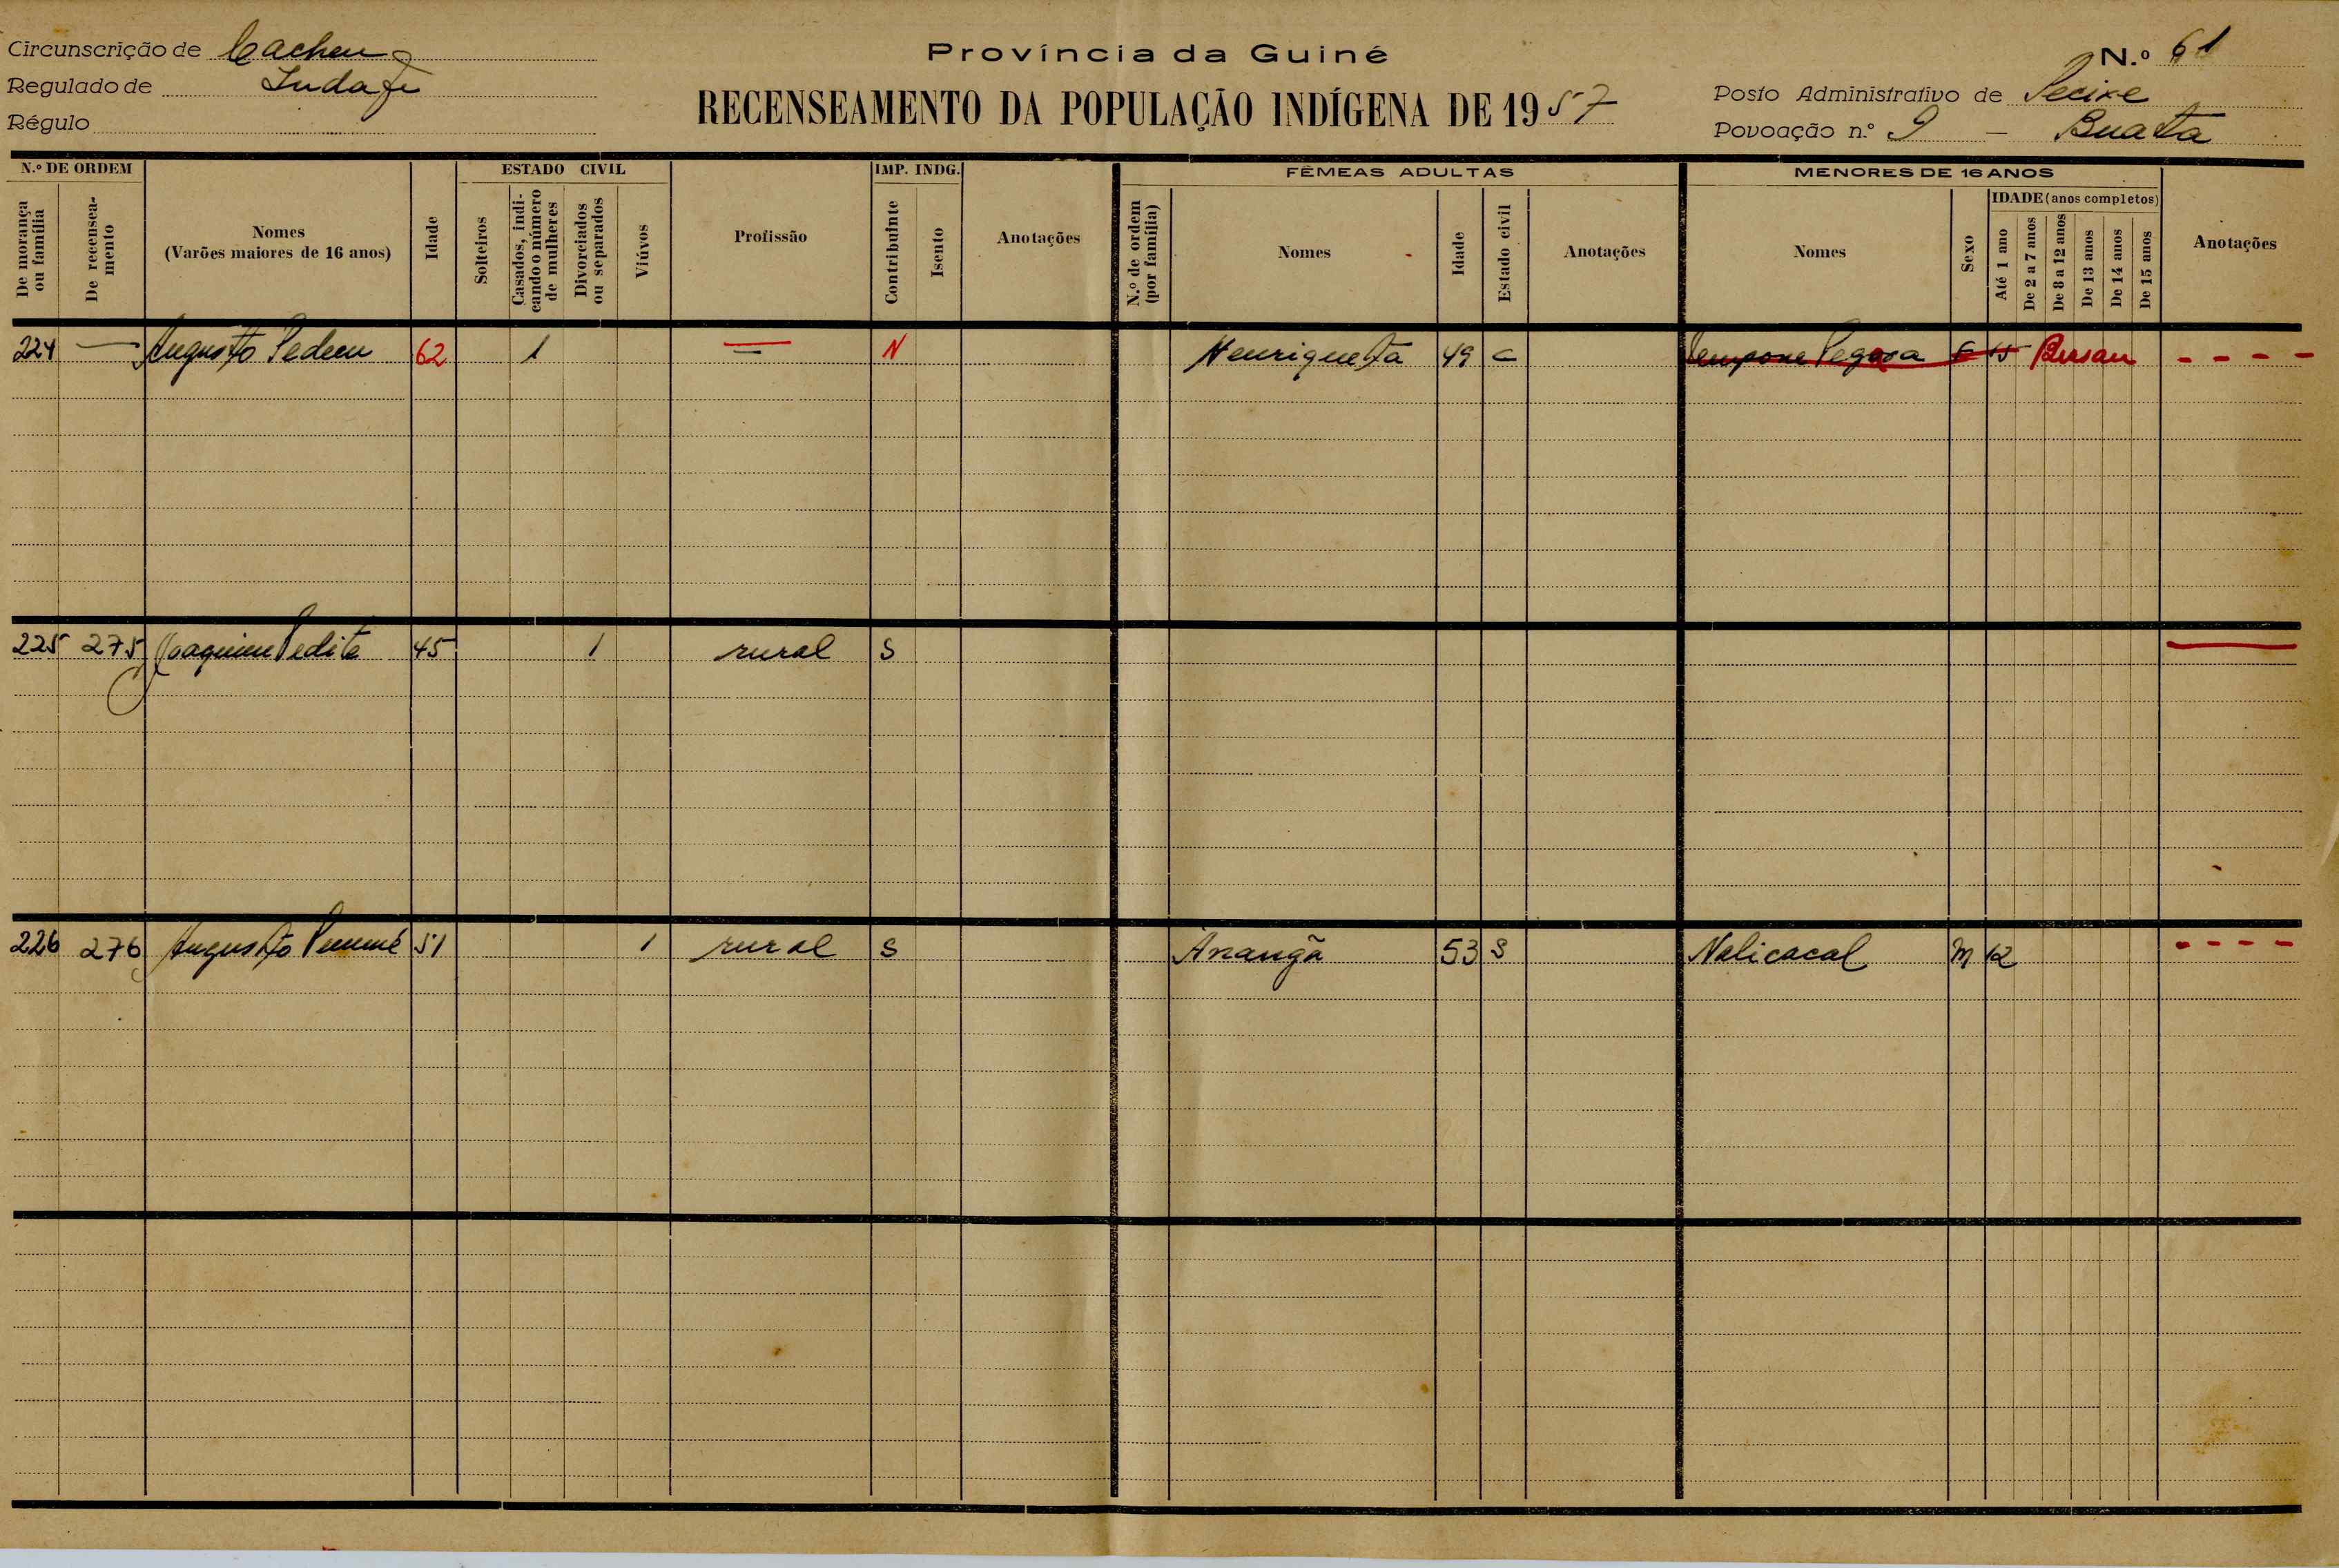 Circunscrição de Cacheu
Regulado de
Régulo
Província da Guiné
RECENSEAMENTO DA POPULAÇÃO INDÍGENA DE 1957
N.º 61
Posto Administrativo de Pecixe
Povoação n.º 9 —
N.º DE ORDEM
De morança ou família
De recenseamento
Nomes
(Varões maiores de 16 anos)
Idade
ESTADO CIVIL
Solteiros
Casados, indicando o número de mulheres
Divorciados ou separados
Viúvos
Profissão
IMP. INDG.
Contribuinte
Isento
Anotações
FÊMEAS ADULTAS
N.º de ordem (por família)
Nomes
Idade
Estado civil
Anotações
MENORES DE 16 ANOS
Nomes
Sexo
IDADE (anos completos)
Até 1 ano
De 2 a 7 anos
De 8 a 12 anos
De 13 anos
De 14 anos
De 15 anos
Anotações
224 — Augusto 62 1 — N Henriqueta 49 C F 15 Bissau - - - -
225 275 Joaquim Pedite 45 1 rural S
226 276 Augusto 51 1 rural S 53 S Nalicacal M 12 - - - -